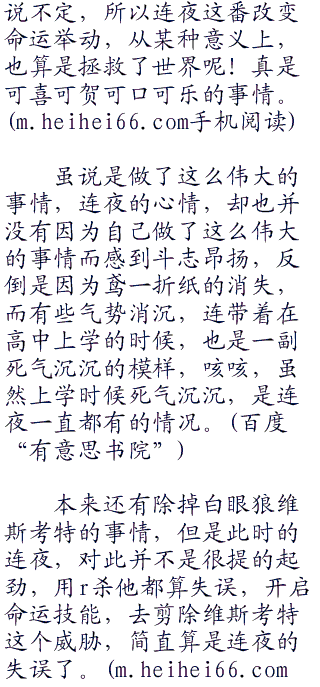 说不定，所以连夜这番改变
命运举动，从某种意义上，
也算是拯救了世界呢！真是
可喜可贺可口可乐的事情。
(m.heihei66.com手机阅读)
虽说是做了这么伟大的
事情，连夜的心情，却也并
没有因为自己做了这么伟大
的事情而感到斗志昂扬，反
倒是因为鸢一折纸的消失，
而有些气势消沉，连带着在
高中上学的时候，也是一副
死气沉沉的模样，咳咳，虽
然上学时候死气沉沉，是连
夜一直都有的情况。(百度
“有意思书院”)
本来还有除掉白眼狼维
斯考特的事情，但是此时的
连夜，对此并不是很提的起
劲，用r杀他都算失误，开启
命运技能，去剪除维斯考特
这个威胁，简直算是连夜的
失误了。(m.heihei66.com